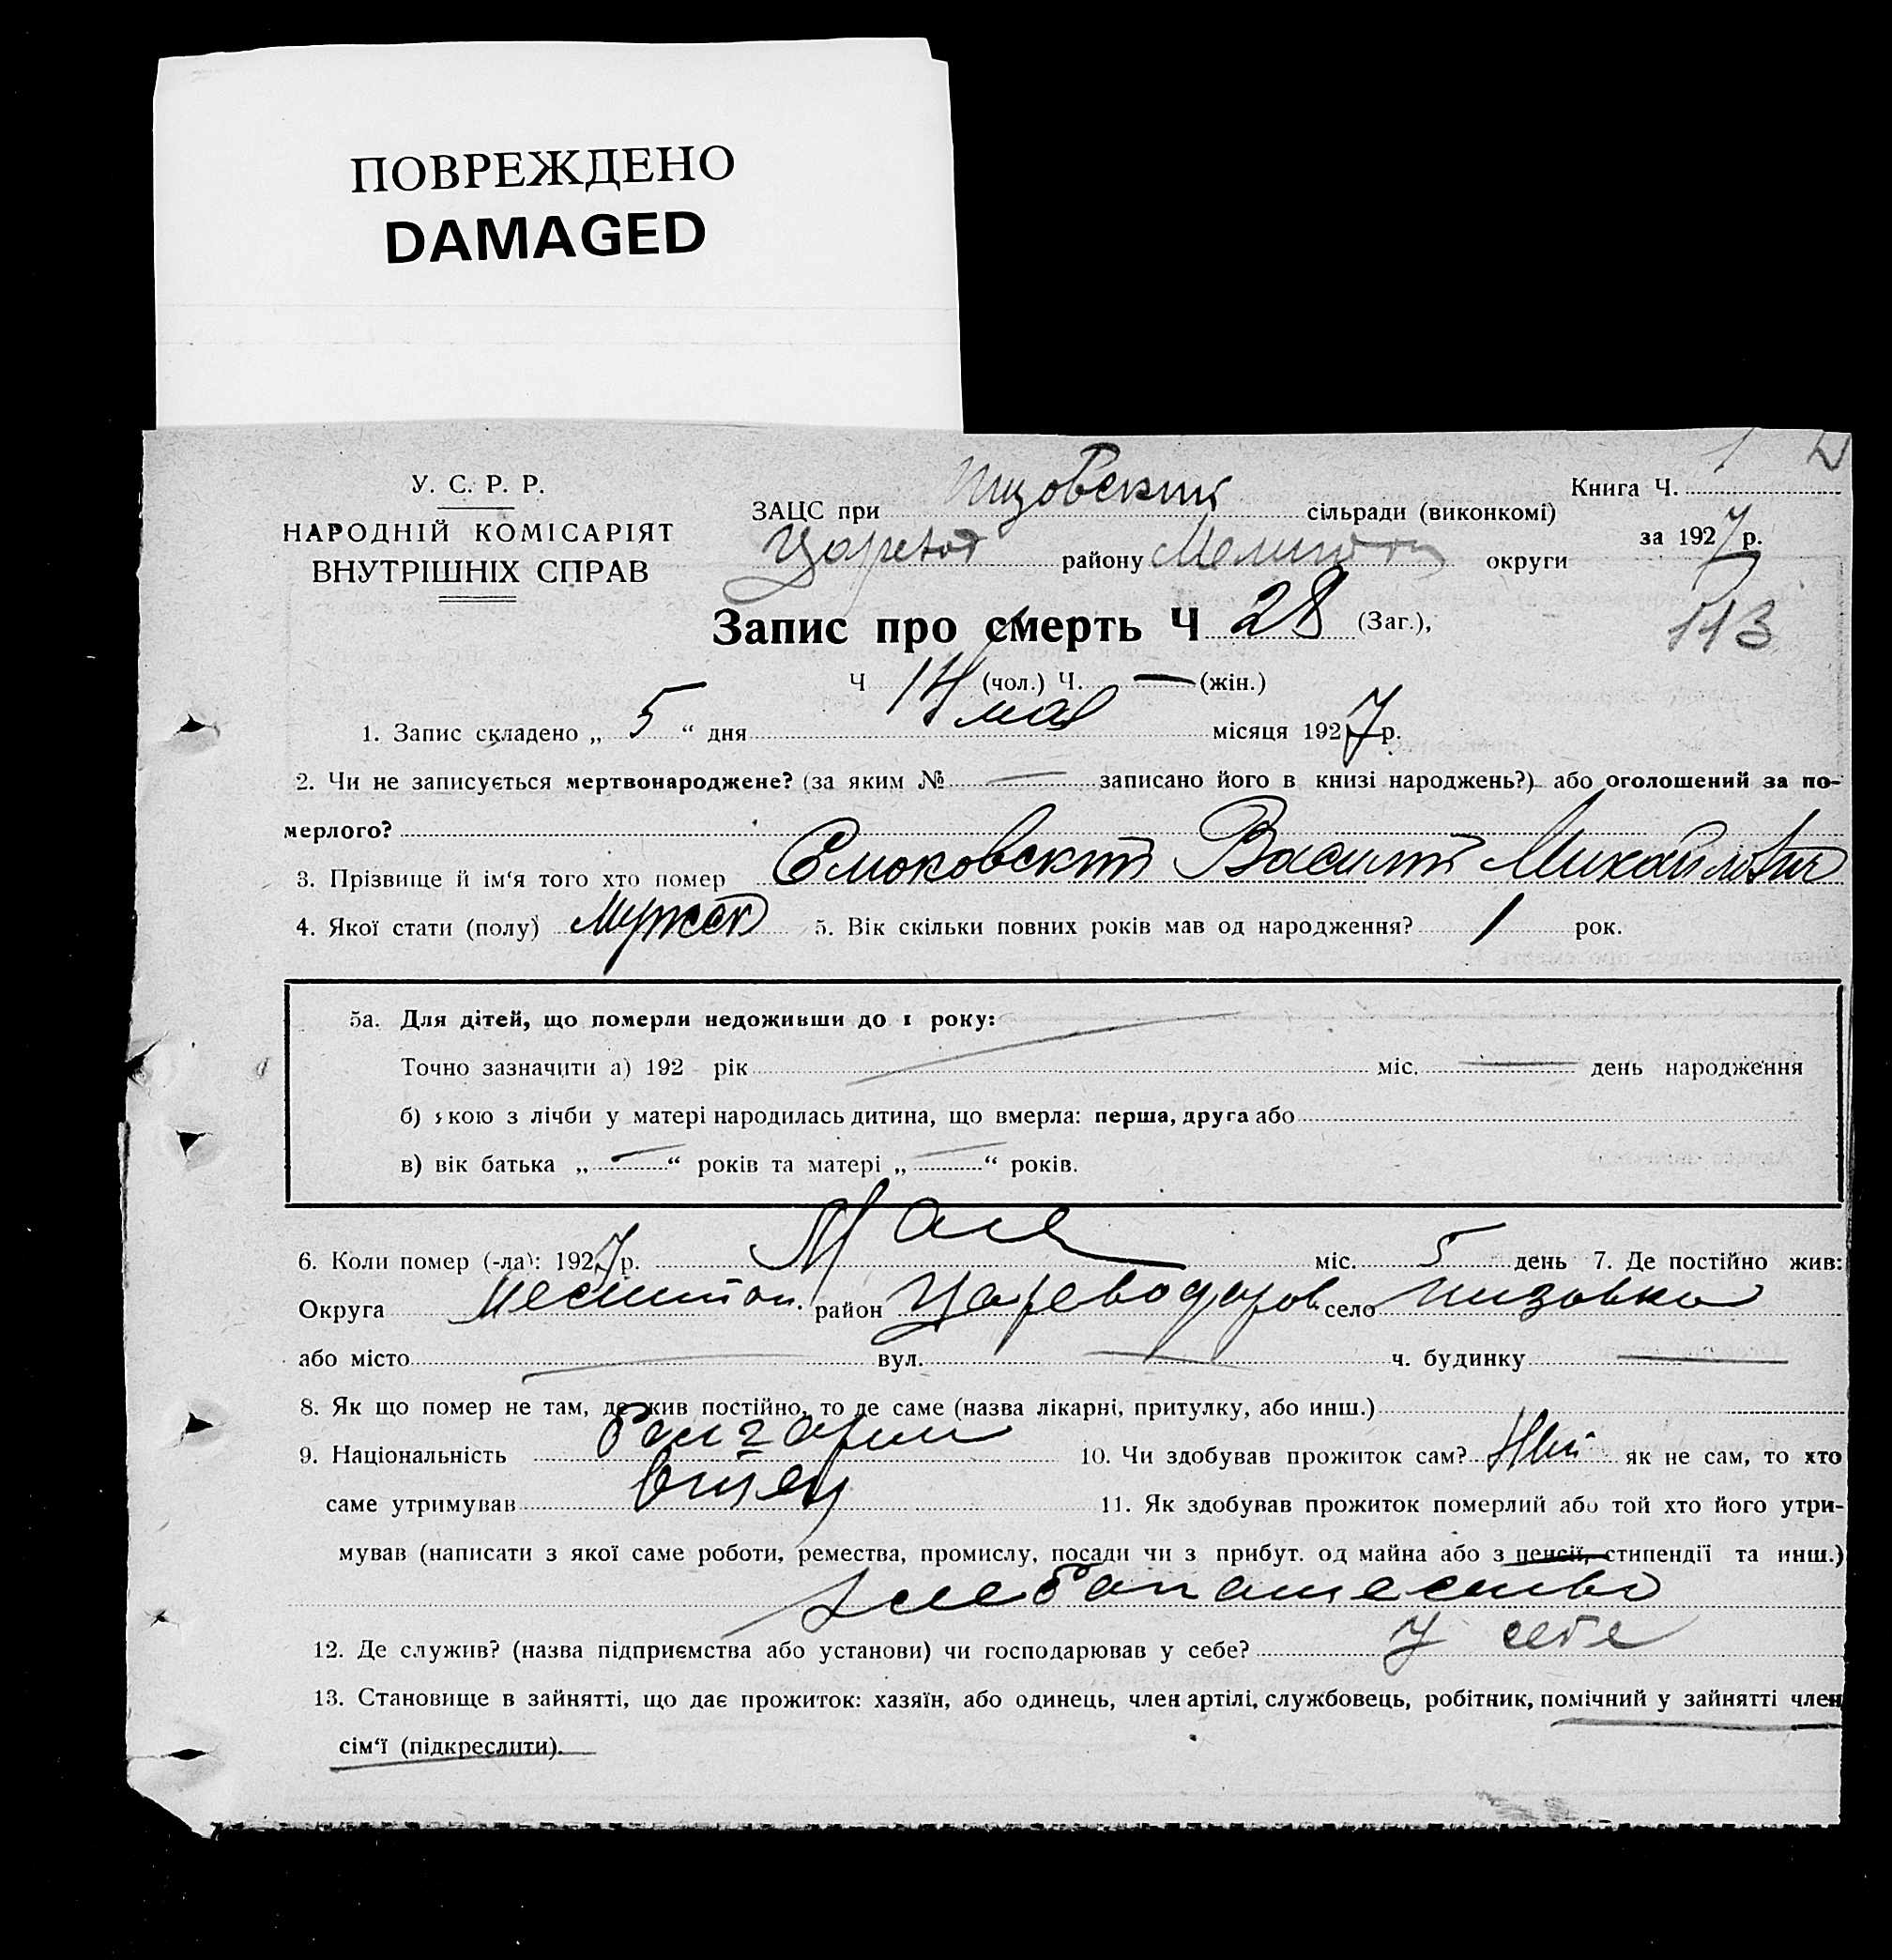 ПОВРЕЖДЕНО
DAMAGED
У. С. Р. Р.
НАРОДНІЙ КОМІСАРІЯТ
ВНУТРІШНІХ СПРАВ
ЗАЦС при сільради (виконкомі)
району округи
Книга Ч. 1
за 1927 р.
113
Запис про смерть Ч 28 (Заг.),
Ч 14 (чол.) Ч. — (жін.)
1. Запис складено „ 5 “ дня мая місяця 1927 р.
2. Чи не записується мертвонароджене? (за яким № — записано його в книзі народжень?) або оголошений за по-
мерлого?
3. Прізвище й ім‘я того хто помер Василий Михайлович
4. Якої стати (полу) Мужск 5. Вік скільки повних років мав од народження? 1 рок.
5а. Для дітей, що померли недоживши до 1 року:
Точно зазначити а) 192 рік — міс. — день народження
б) якою з лічби у матері народилась дитина, що вмерла: перша, друга або
в) вік батька „ — “ років та матері „ — “ років.
6. Коли помер (-ла): 1927 р. Мая міс. 5 день 7. Де постійно жив:
Округа район село
або місто — вул. — ч. будинку —
8. Як що помер не там, де жив постійно, то де саме (назва лікарні, притулку, або инш.)
9. Національність 10. Чи здобував прожиток сам? як не сам, то хто
саме утримував отец 11. Як здобував прожиток померлий або той хто його утри-
мував (написати з якої саме роботи, ремества, промислу, посади чи з прибут. од майна або з пенсії, стипендії та инш.)
хлебопашество
12. Де служив? (назва підприємства або установи) чи господарював у себе? у себе
13. Становище в зайнятті, що дає прожиток: хазяїн, або одинець, член артілі, службовець, робітник, помічний у зайнятті член
сім‘ї (підкреслити).